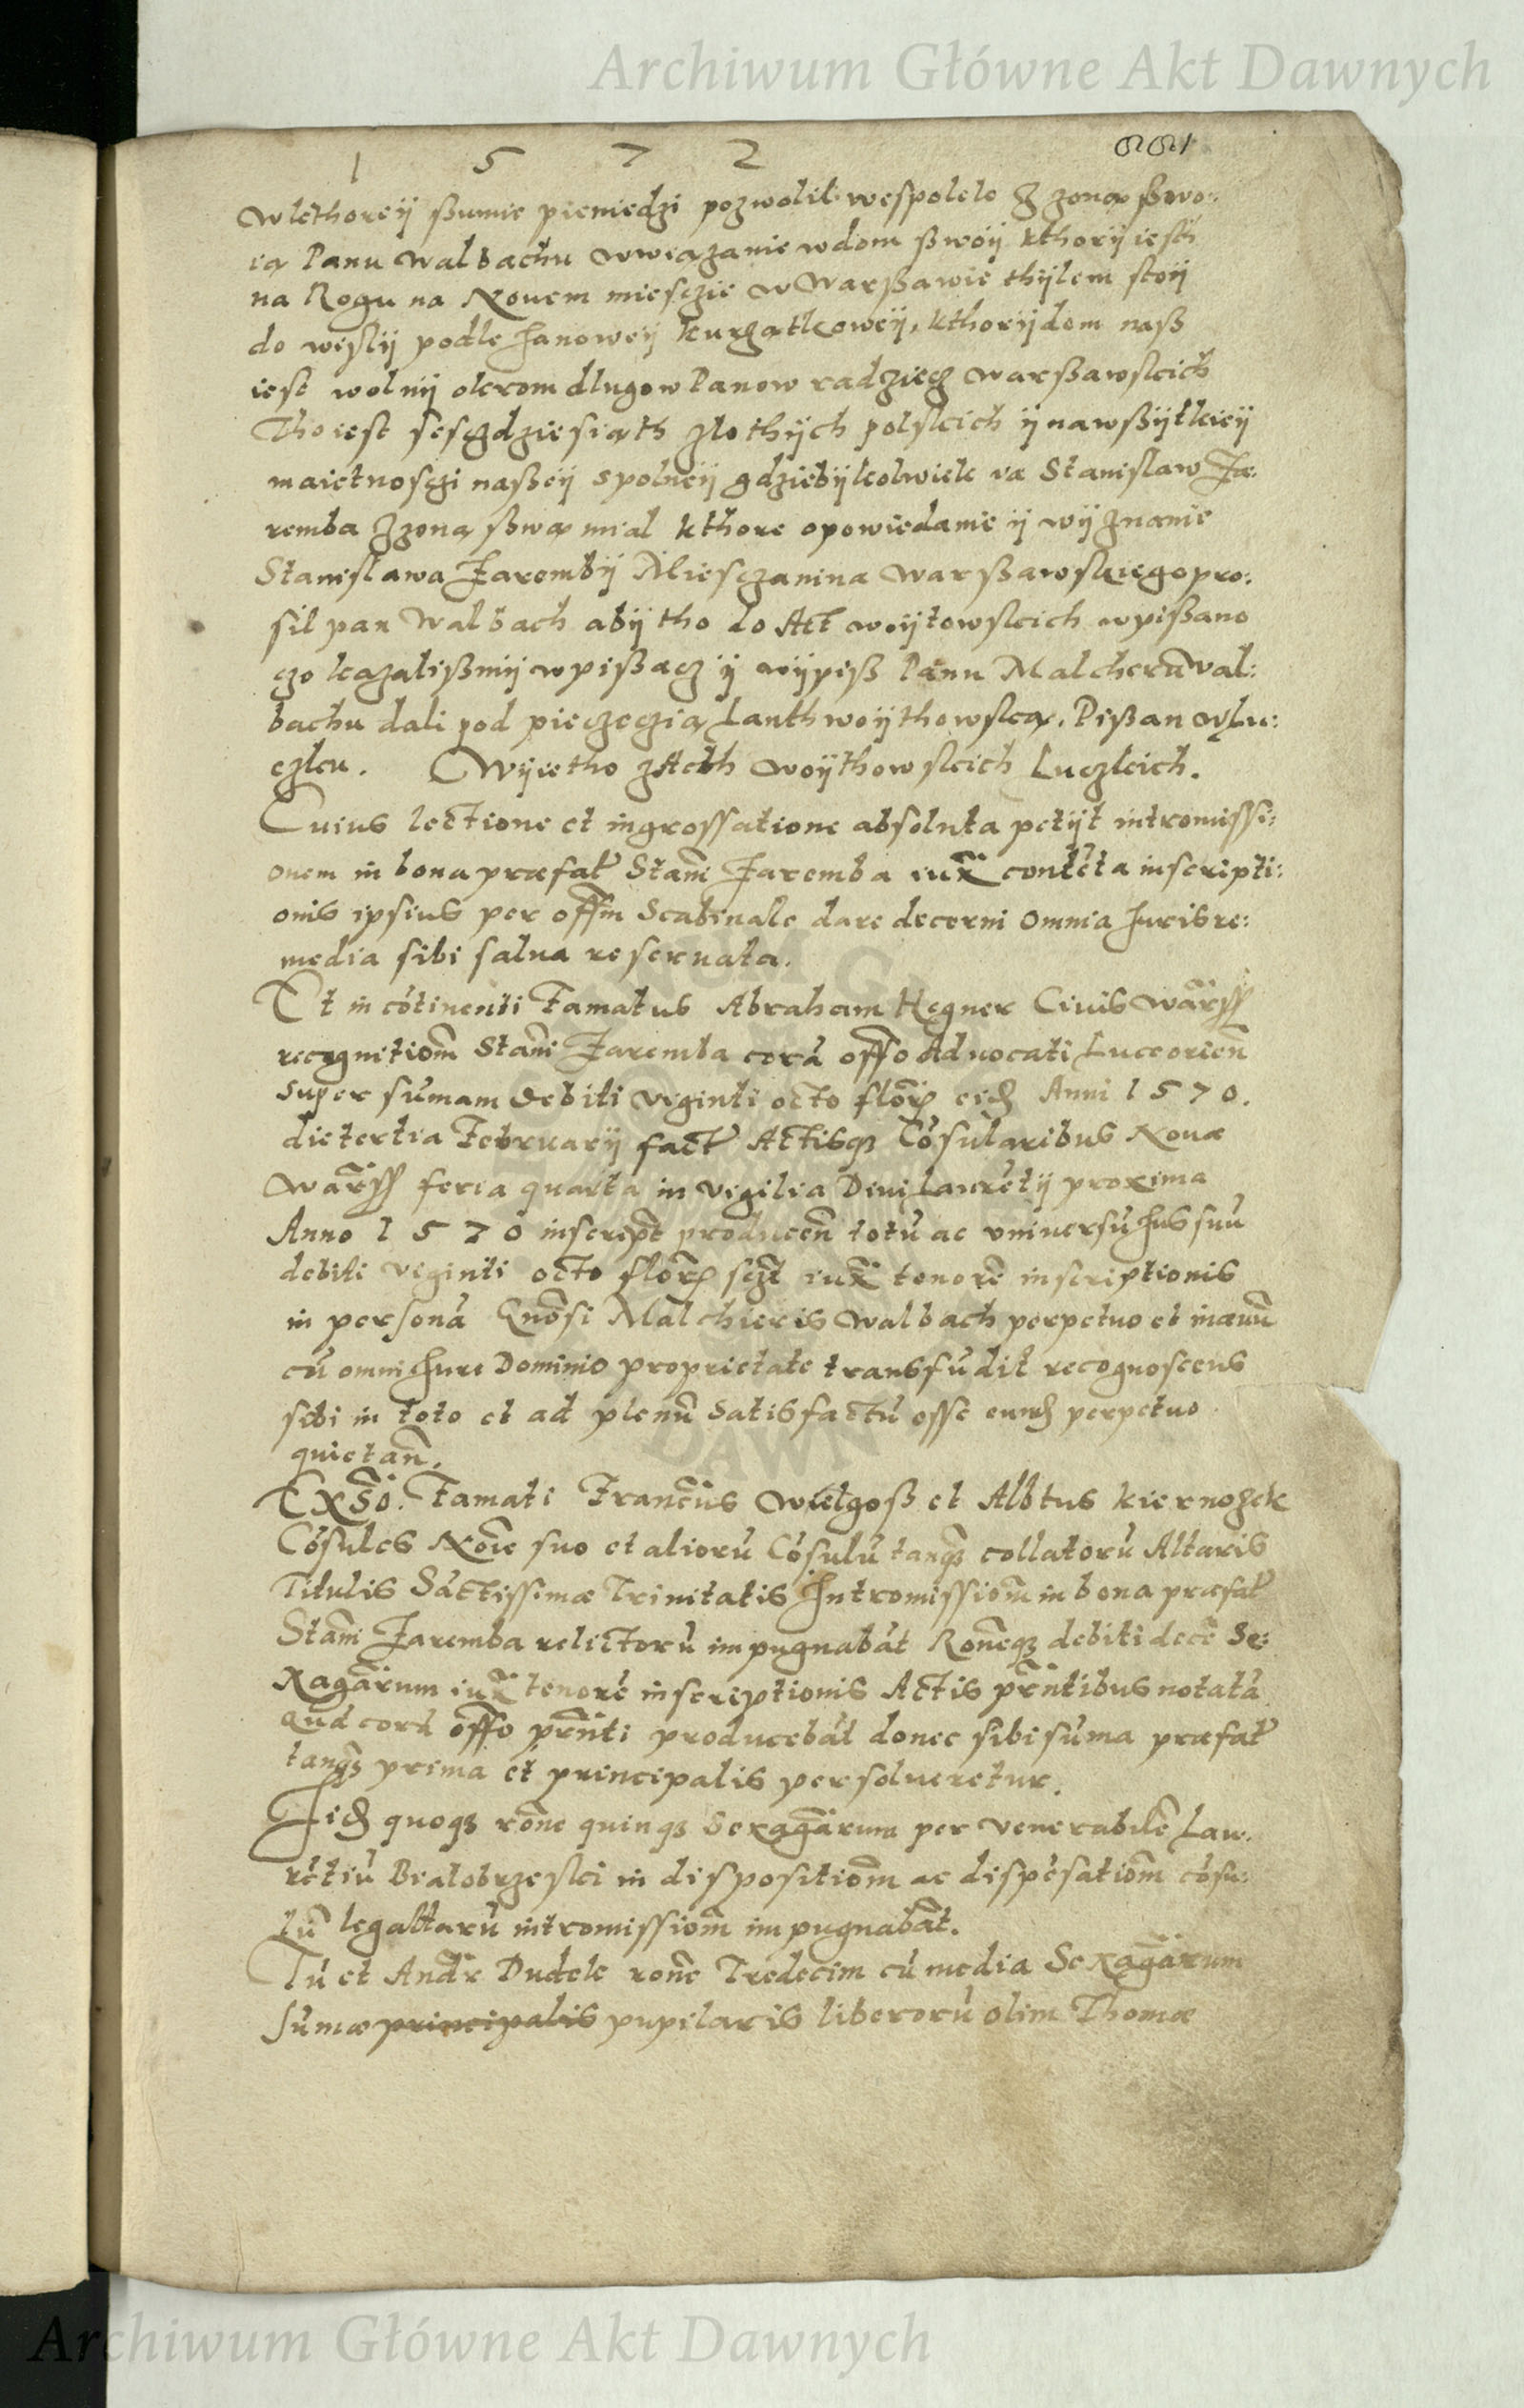 Archiwum Główne Akt Dawnych
1 5 7 2 881
wkthoreÿ ßumie pieniedzi pozwolil wespolek z zoną ßwo:
ią Panu Walbachu wwiązanie wdom ßwóÿ kthorÿ iesth
na Rogu na Nouem miesczie w Warßawie thÿlem stoÿ
do wislÿ podle Janoweÿ kurgątkoweÿ, kthorÿ dom naß
iest wolnÿ okrom dlugow Panow radziecz warßawskich
Tho iest sesczdziesiąth zlothÿch polskich ÿ nawßÿtkieÿ
maietnosczi naßeÿ spolneÿ gdziebÿkolwiek ia Stanislaw Ja:
remba z zoną ßwą mial kthore opowiedanie ÿ wÿznanie
Stanislawa Jarembÿ Miesczanina warßawskiego pro:
sil pan Walbach abÿ tho do Act woÿtowskich wpißano
czo kazalißmÿ wpißacz ÿ wÿpiß Panu Malcherū Wal:
bachu dali pod pieczeczią Lanthwoÿthowską. Pißan w Lu:
czku. Wÿietho z Acth woÿthowskich Luczkich.
Cuius lectione et ingrossatione absoluta petÿt intromissi:
onem in bona præfat̃ Stañi Jaremba iux̃ contẽta inscripti:
onis ipsius per offm̃ Scabinale dare decerni omnia Juris re:
media sibi salua reseruata.
Et in cótinenti Famatus Abraham Hegner Ciuis Warss̃
recognitiom̃ Stañi Jaremba corã offo Aduocati Luceorieñ
super sũmam debiti viginti octo flor̃ eid̃ Anni 1570.
die tertia Februarÿ fact̃ Actisq̃ Cósularibus Nouæ
Warss̃ feria quarta in vigilia Diui Laurẽtÿ proxima
Anno 1570 inscript̃ produceñ totũ ac vniuersũ Jus suũ
debiti viginti octo flor̃ scz̃t iux̃ tenorẽ inscriptionis
in personã Gnõsi Malchieris Walbach perpetuo et in æuũ
cũ omni Jure Dominio proprietate transfũdit recognoscens
sibi in toto et ad plenũ satisfactũ esse eund̃ perpetuo
quietañ.
Ex ão. Famati Franc̃us Wielgoß et Albtus kiernozek
Cósules Nõie suo et aliorũ Cósulũ tanq̃ collatorũ Altaris
Titulis Sãctissimæ Trinitatis Intromissiom̃ in bona præfat̃
Stañi Jaremba relictorũ impugnabãt Roneq̃ debiti decẽ Se:
xagãrum iux̃ tenorẽ inscriptionis Actis pr̃ntibus notatã
Qud corã offo pr̃nti producebãt donec sibi sũma præfat̃
tanq̃ prima et principalis persolueretur.
Iid̃ quoq̃ rõne quinq̃ Sexagãrum per venerabilẽ Lau:
rẽtiũ Bialobrzeski in dispositiom̃ ac dispẽsatiom̃ cósu:
lũ legattarũ intromissiom̃ impugnabãt.
Tũ et Andr̃ Dudek rõne Tredecim cũ media Sexagãrum
sũmæ principalis pupilaris liberorũ olim Thomæ
Archiwum Główne Akt Dawnych